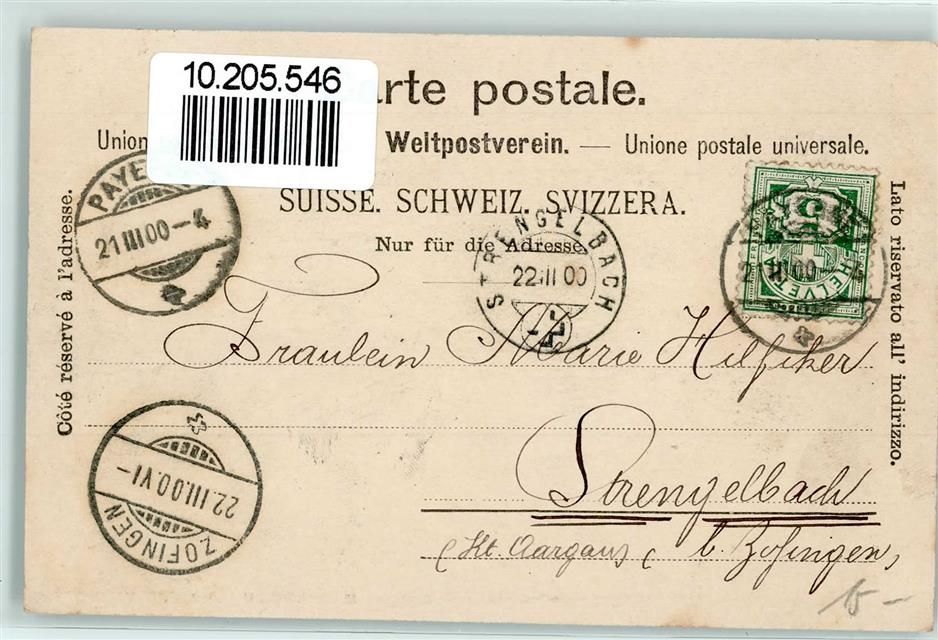 10.205.546
arte postale.
Union Weltpostverein. — Unione postale universale.
SUISSE. SCHWEIZ. SVIZZERA.
Nur für die Adresse.
Côté réservé à l'adresse.
Lato riservato all' indirizzo.
PAYE
21 III 00 – 4
STRENGELBACH
22 III 00
5
HELVETIA
III 00
Fräulein Marie Hilfiker
Strengelbach
(Kt. Aargau) b. Zofingen,
22.III.00.VI–
ZOFINGEN
15 –